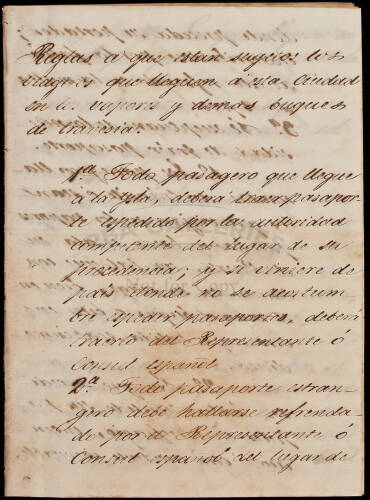 Reglas a que estan sugetos los
viageros que lleguen á esta Ciudad
en los vapores y demas buques
de travesia.
1ª Todo pasagero que llegue
á la Ysla, deberá traer pasapor-
te espedido por la autoridad
competente del lugar de su
procedencia; y si viniere de
pais donde no se acostum-
bra espedir pasaportes, deberá
traerlo del Representante ó
Consul español
2ª Todo pasaporte estran-
gero debe hallarse refrenda-
do por el Representante ó
Consul español del lugar de